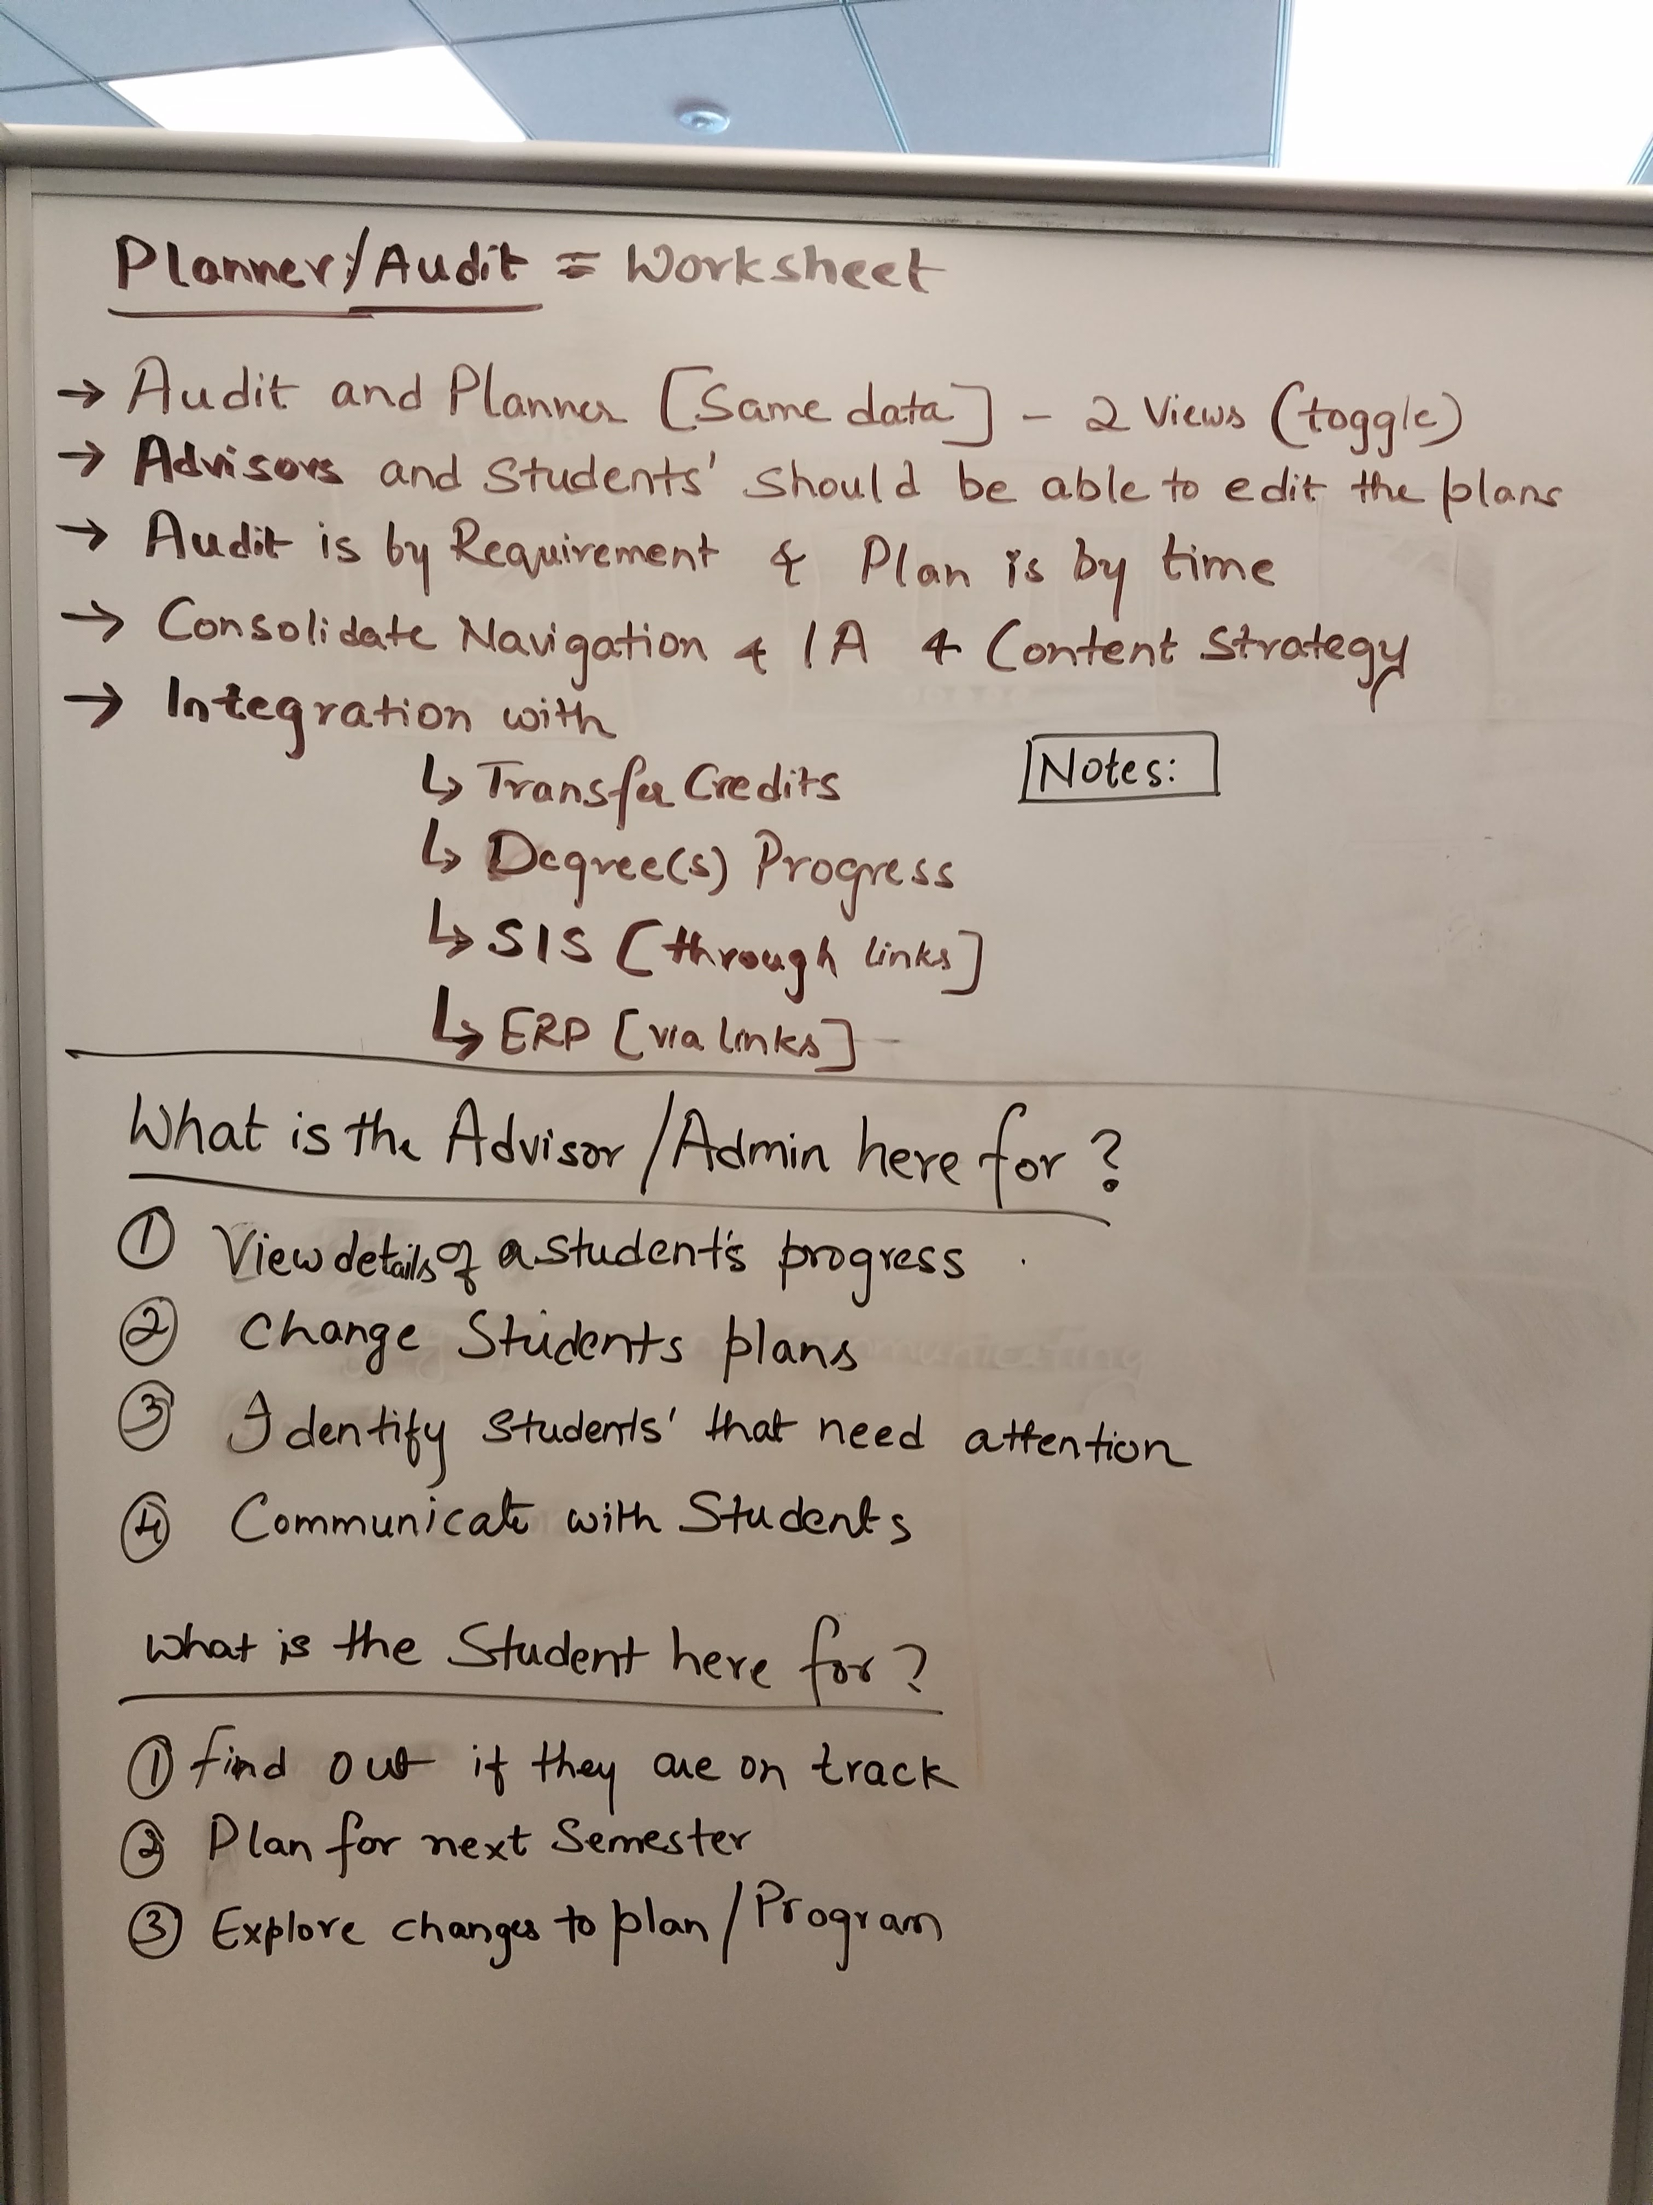 Planner/Audit = Worksheet
→ Audit and Planner [Same data] - 2 Views (toggle)
→ Advisors and Students' should be able to edit the plans
→ Audit is by Requirement & Plan is by time
→ Consolidate Navigation & IA & Content Strategy
→ Integration with
↳ Transfer Credits
Notes:
↳ Degree(s) Progress
↳ SIS [through links]
↳ ERP [via links]
What is the Advisor/Admin here for?
① View details of a student's progress
② Change Students plans
③ Identify Students' that need attention
④ Communicate with Students
What is the Student here for?
① find out if they are on track
② Plan for next Semester
③ Explore changes to plan/Program